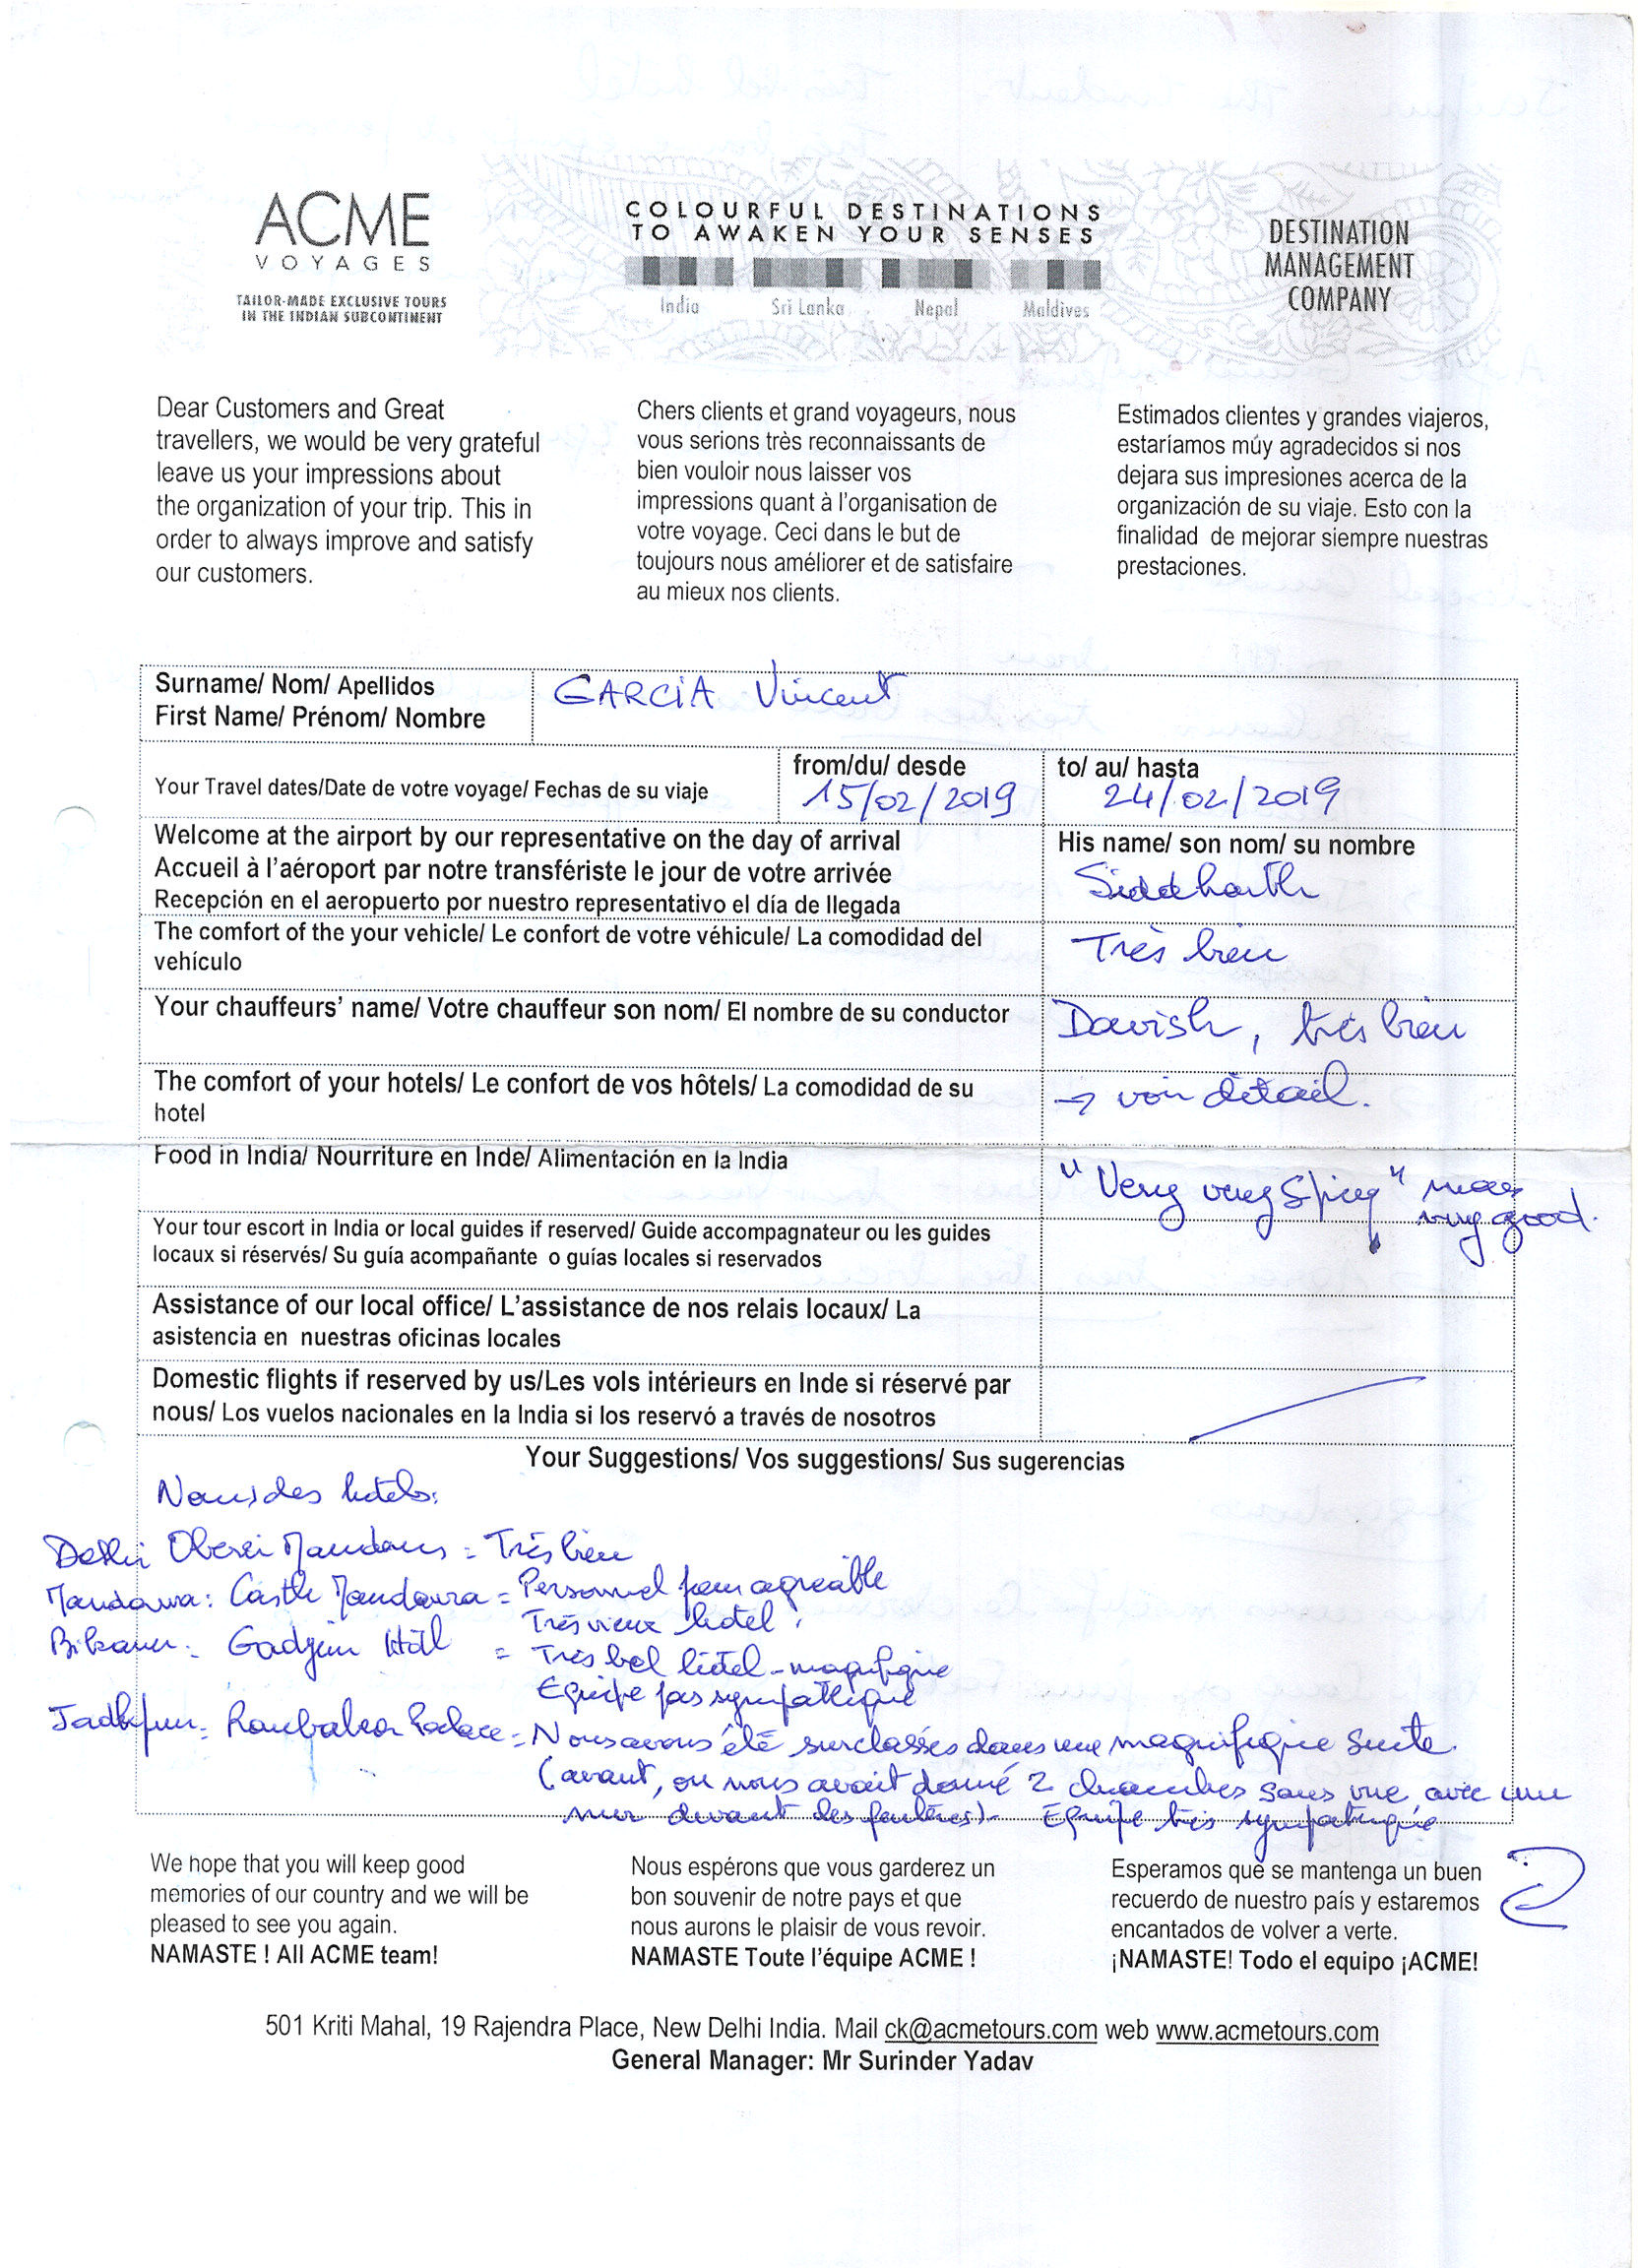 ACME
VOYAGES
TAILOR-MADE EXCLUSIVE TOURS
IN THE INDIAN SUBCONTINENT
COLOURFUL DESTINATIONS
TO AWAKEN YOUR SENSES
India Sri Lanka Nepal Maldives
DESTINATION
MANAGEMENT
COMPANY
Dear Customers and Great
travellers, we would be very grateful
leave us your impressions about
the organization of your trip. This in
order to always improve and satisfy
our customers.
Chers clients et grand voyageurs, nous
vous serions très reconnaissants de
bien vouloir nous laisser vos
impressions quant à l'organisation de
votre voyage. Ceci dans le but de
toujours nous améliorer et de satisfaire
au mieux nos clients.
Estimados clientes y grandes viajeros,
estaríamos múy agradecidos si nos
dejara sus impresiones acerca de la
organización de su viaje. Esto con la
finalidad de mejorar siempre nuestras
prestaciones.
Surname/ Nom/ Apellidos
First Name/ Prénom/ Nombre
GARCIA Vincent
Your Travel dates/Date de votre voyage/ Fechas de su viaje
from/du/ desde
15/02/2019
to/ au/ hasta
24/02/2019
Welcome at the airport by our representative on the day of arrival
Accueil à l'aéroport par notre transfériste le jour de votre arrivée
Recepción en el aeropuerto por nuestro representativo el día de llegada
His name/ son nom/ su nombre
Siddharth
The comfort of the your vehicle/ Le confort de votre véhicule/ La comodidad del
vehículo
Très bien
Your chauffeurs' name/ Votre chauffeur son nom/ El nombre de su conductor
Davish, très bien
The comfort of your hotels/ Le confort de vos hôtels/ La comodidad de su
hotel
→ voir détail.
Food in India/ Nourriture en Inde/ Alimentación en la India
"Very very Spicy"
very good.
Your tour escort in India or local guides if reserved/ Guide accompagnateur ou les guides
locaux si réservés/ Su guía acompañante o guías locales si reservados
Assistance of our local office/ L'assistance de nos relais locaux/ La
asistencia en nuestras oficinas locales
Domestic flights if reserved by us/Les vols intérieurs en Inde si réservé par
nous/ Los vuelos nacionales en la India si los reservó a través de nosotros
Your Suggestions/ Vos suggestions/ Sus sugerencias
Noms des hotels:
Delhi Oberoi = Très bien
Mandawa: Castle Mandawa = Personnel peu agréable
Très vieux hotel !
Bikaner: = Très bel hôtel - magnifique
Equipe pas sympathique
Palace = Nous avons été surclassés dans une magnifique suite.
(avant, on nous avait donné 2 chambres sans vue, avec un
mur devant les fenêtres) - Equipe très sympathique
We hope that you will keep good
memories of our country and we will be
pleased to see you again.
NAMASTE ! All ACME team!
Nous espérons que vous garderez un
bon souvenir de notre pays et que
nous aurons le plaisir de vous revoir.
NAMASTE Toute l'équipe ACME !
Esperamos que se mantenga un buen
recuerdo de nuestro país y estaremos
encantados de volver a verte.
¡NAMASTE! Todo el equipo ¡ACME!
501 Kriti Mahal, 19 Rajendra Place, New Delhi India. Mail ck@acmetours.com web www.acmetours.com
General Manager: Mr Surinder Yadav